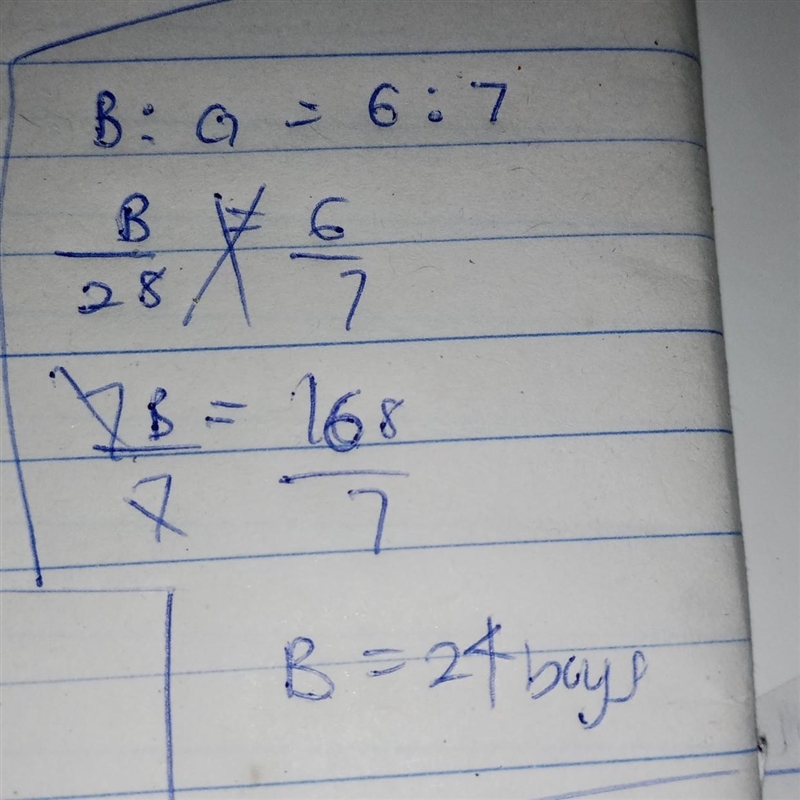 B : G = 6 : 7
B/28 = 6/7
7B/7 = 168/7
B = 24 boys